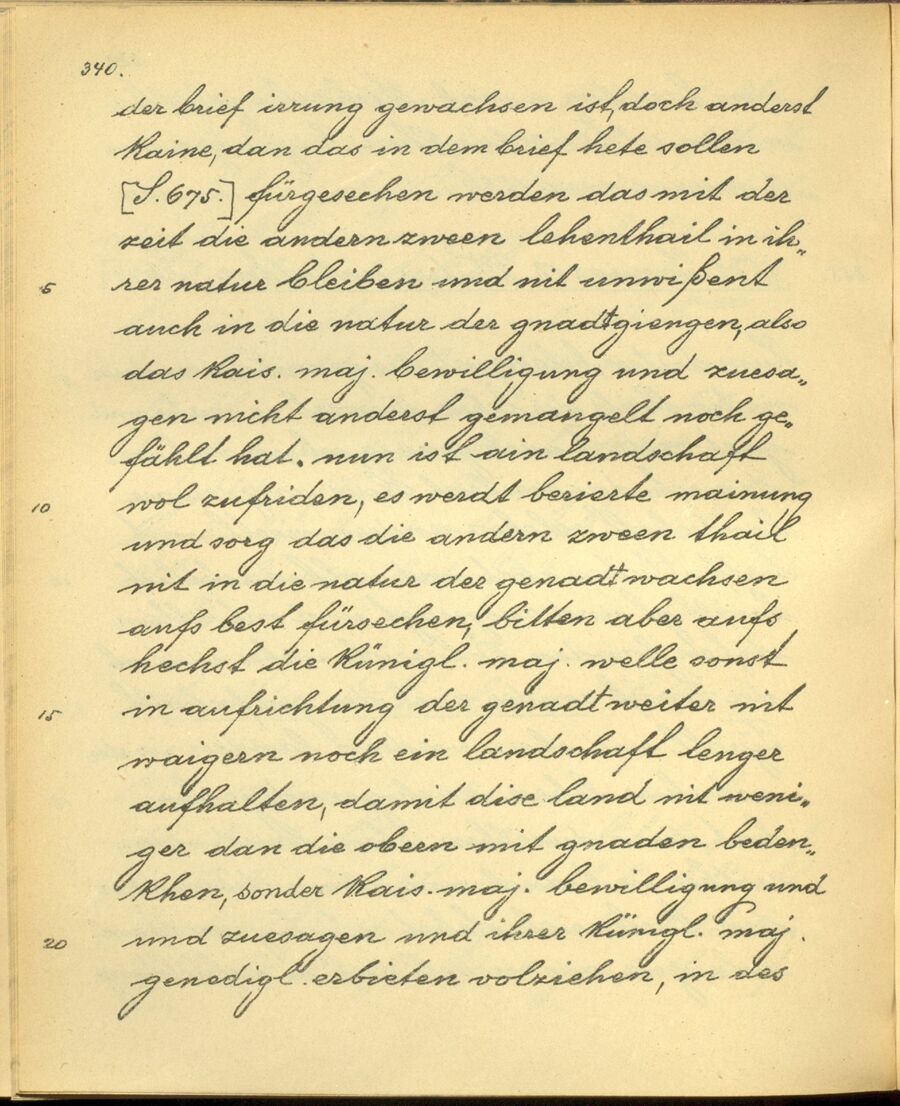 340.
der brief irrung gewachsen ist, doch anderst
kaine, dan das in dem brief hete sollen
[S. 675.] fürgesechen werden das mit der
zeit die andern zween lehenthail in ih„
5 rer natur bleiben und nit unwißent
auch in die natur der gnadt giengen, also
das kais. maj. bewilligung und zuesa„
gen nicht anderst gemangelt noch ge„
fählt hat. nun ist ain landschaft
10 wol zufriden, es werdt berierte mainung
und sorg das die andern zween thail
nit in die natur der genadt wachsen
aufs best fürsechen, bitten aber aufs
hechst die künigl. maj. welle sonst
15 in aufrichtung der genadt weiter nit
waigern noch ein landschaft lenger
aufhalten, damit dise land nit weni„
ger dan die obern mit gnaden beden„
khen, sonder kais. maj. bewilligung und
20 und zuesagen und ihrer künigl. maj.
genedigl. erbieten volziehen, in des